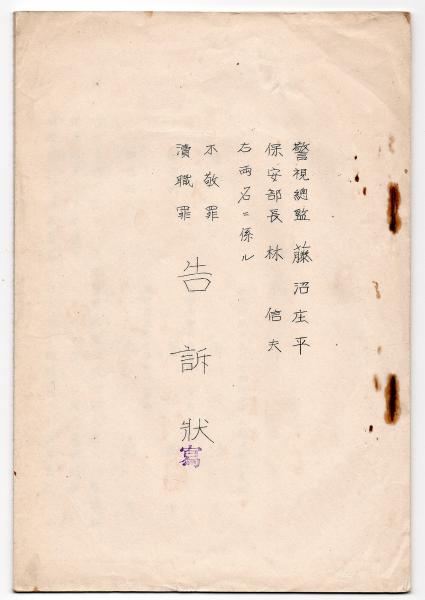 警視總監 藤沼庄平
保安部長 林信夫
右両名ニ係ル
不敬罪
瀆職罪
告訴状
寫